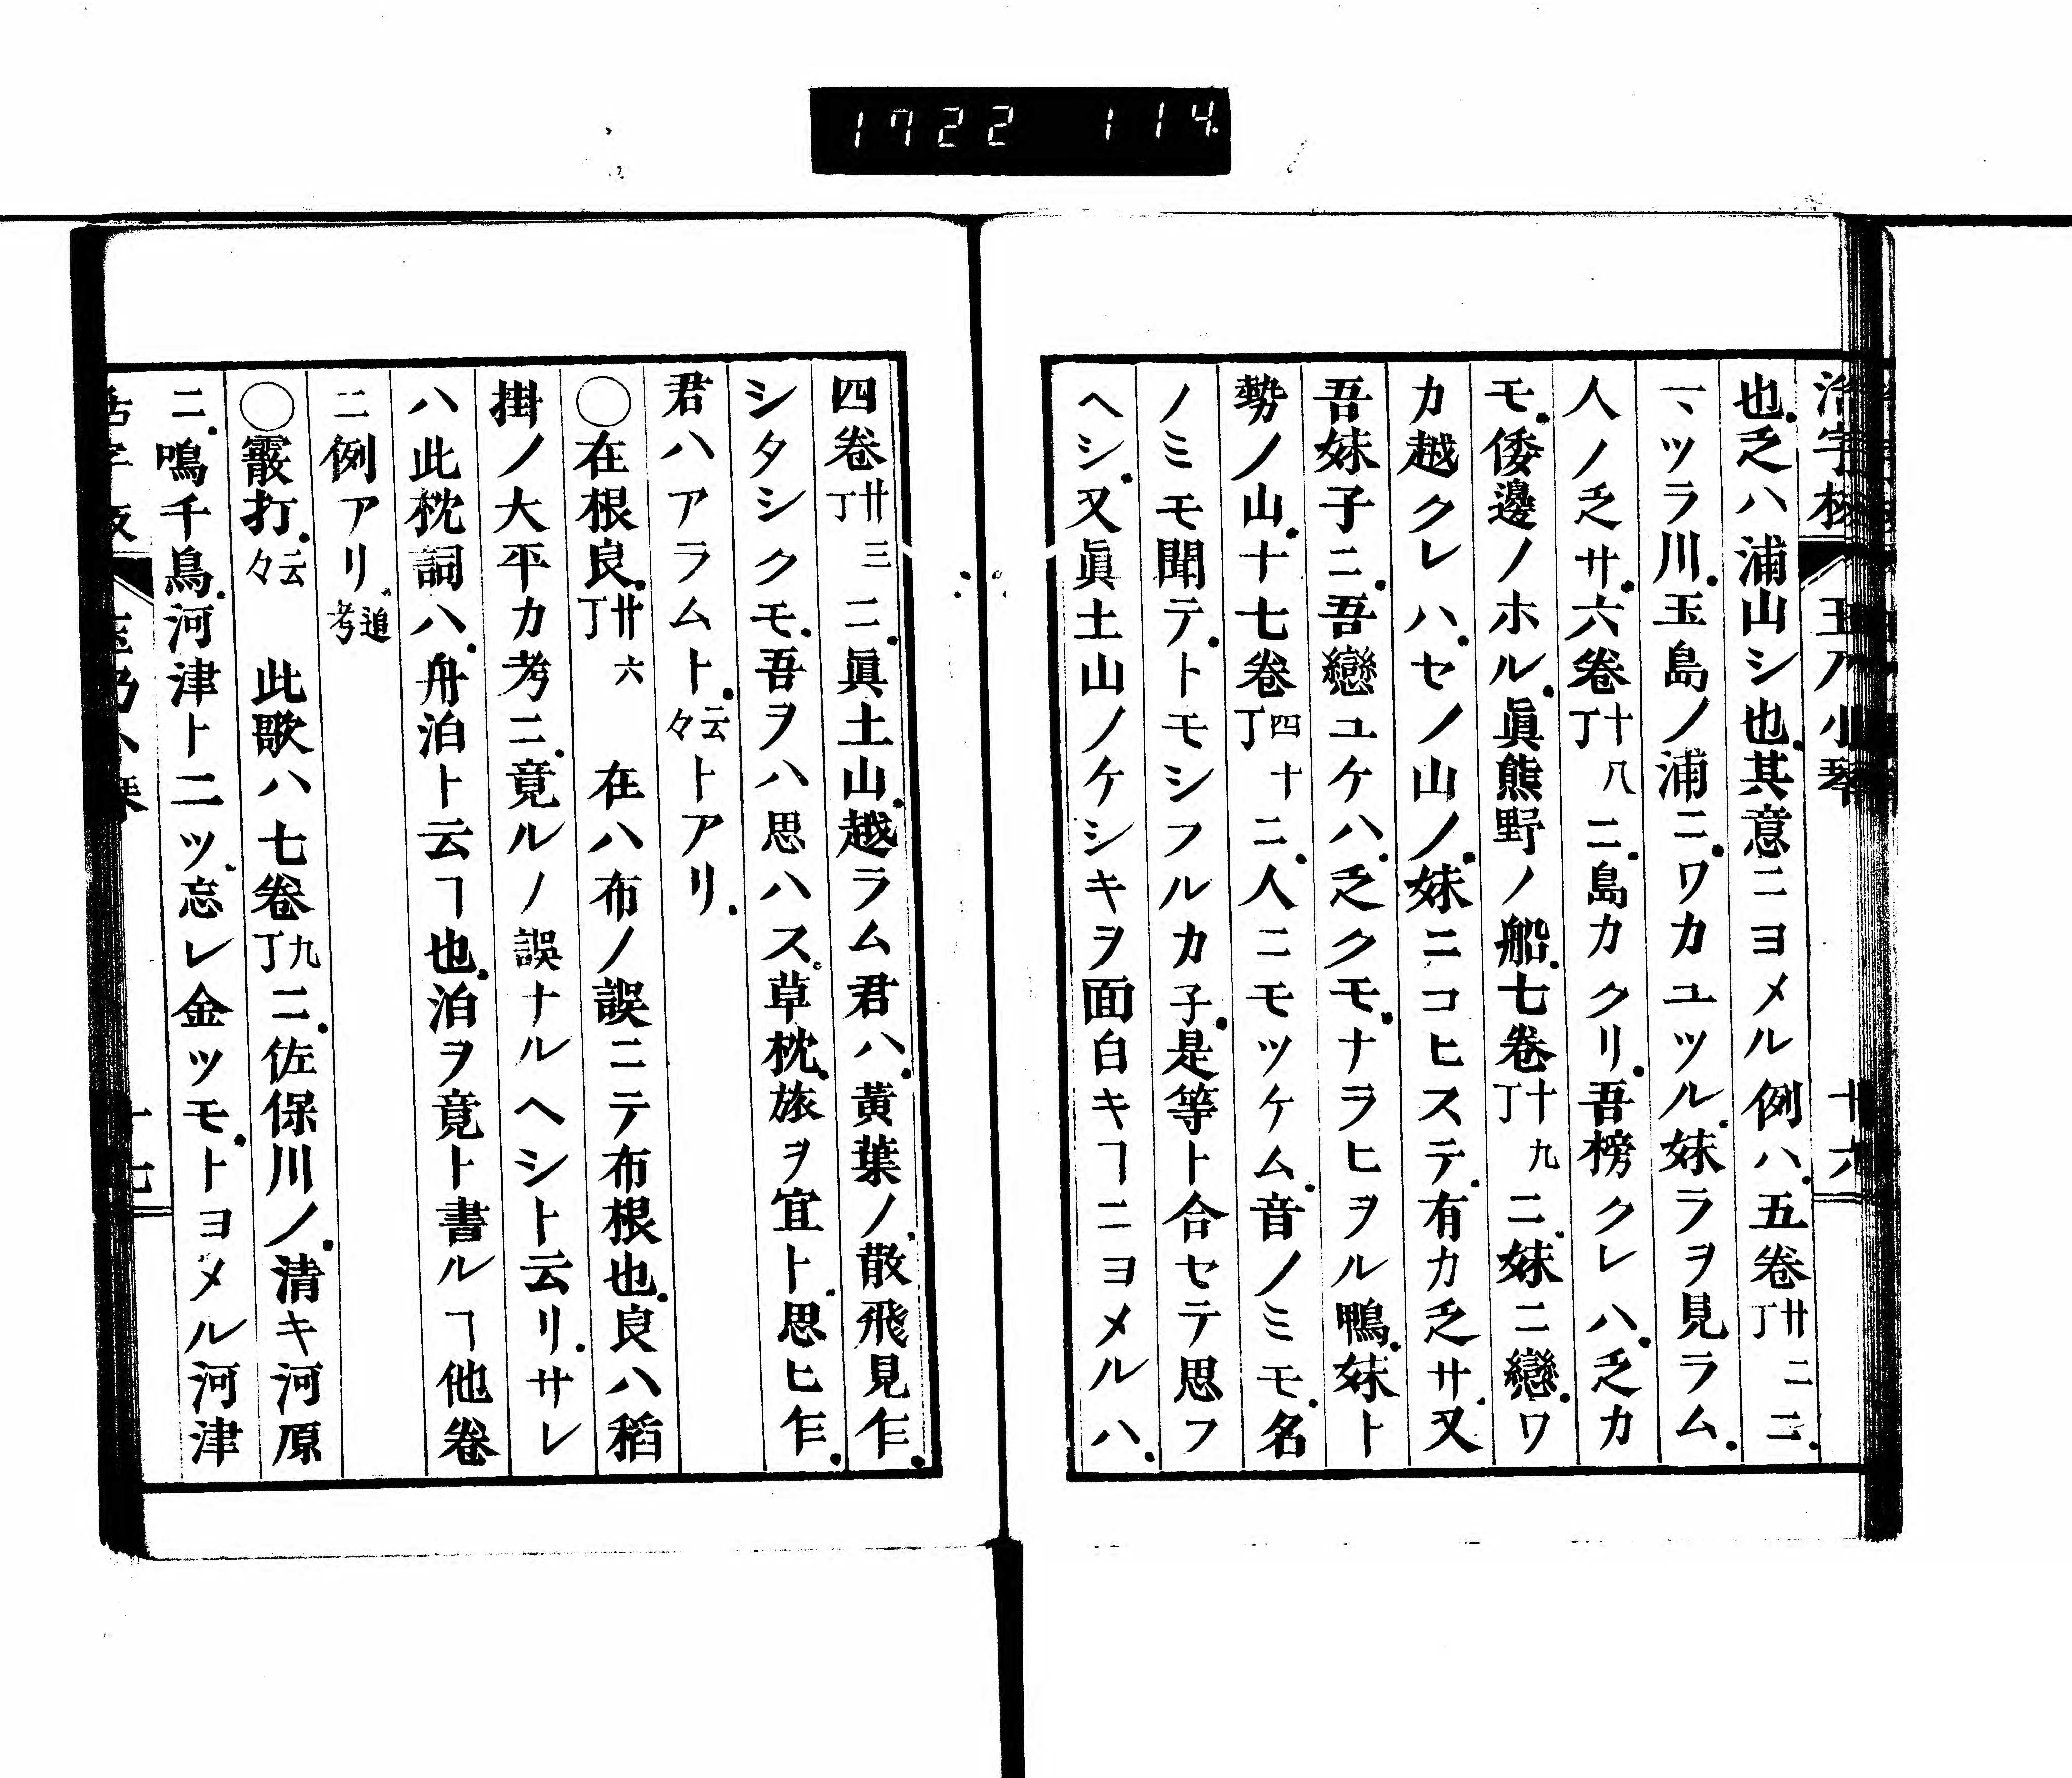 1722 114.
活字板 玉ノ小琴 十六
也.乏ハ浦山シ也.其意ニヨメル例ハ.五卷廿二丁ニ.
一、ツラ川.玉島ノ浦ニ.ワカユツル.妹ラヲ見ラム.
人ノ乏サ.六卷十八丁ニ.島カクリ.吾榜クレハ.乏カ
モ.倭邊ノホル.眞熊野ノ船.七卷十九丁ニ.妹ニ戀.ワ
カ越クレハ.セノ山ノ.妹ニコヒステ.有カ乏サ.又
吾妹子ニ.吾戀ユケハ.乏クモ.ナヲヒヲル鴨.妹ト
勢ノ山.十七卷四十丁ニ.人ニモツケム.音ノミモ.名
ノミモ聞テ.トモシフルカ子.是等ト合セテ思フ
ヘシ.又眞土山ノケシキヲ面白キヿニヨメルハ.
四卷廿三丁ニ.眞土山.越ラム君ハ.黃葉ノ.散飛見乍.
シタシクモ.吾ヲハ思ハス.草枕.旅ヲ宜ト.思ヒ乍.
君ハアラムト.云々トアリ.
〇在根良.廿六丁 在ハ布ノ誤ニテ布根也.良ハ稻
掛ノ大平カ考ニ.竟ルノ誤ナルヘシト云リ.サレ
ハ此枕詞ハ.舟泊ト云ヿ也.泊ヲ竟ト書ルヿ他卷
ニ例アリ.追考
〇霰打.云々 此歌ハ七卷九丁ニ.佐保川ノ.清キ河原
ニ.鳴千鳥.河津ト二ツ.忘レ金ツモ.トヨメル河津